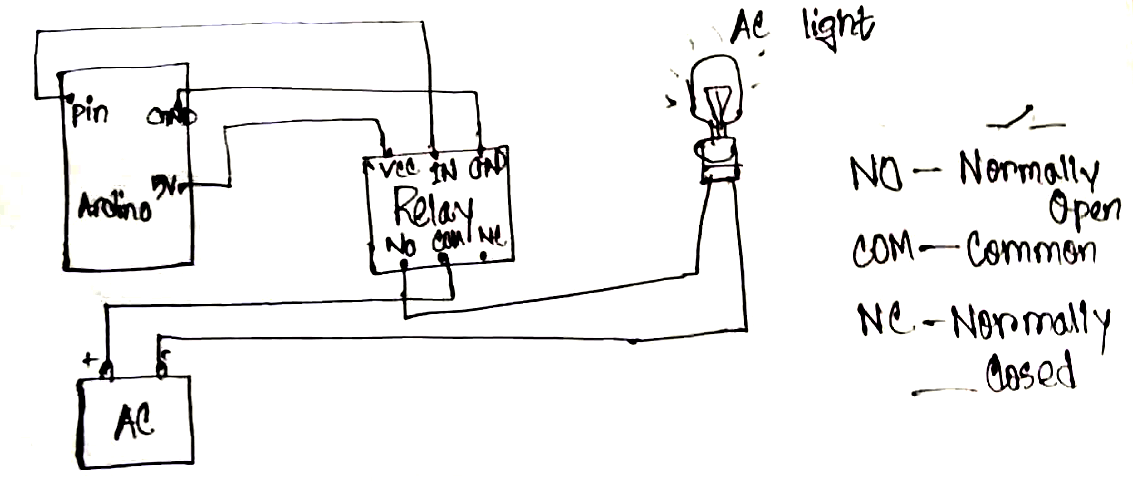 AC light
Pin
GND
5V
Ardino
VCC IN GND
Relay
NO COM NC
+ -
AC
NO - Normally
Open
COM - Common
NC - Normally
Closed